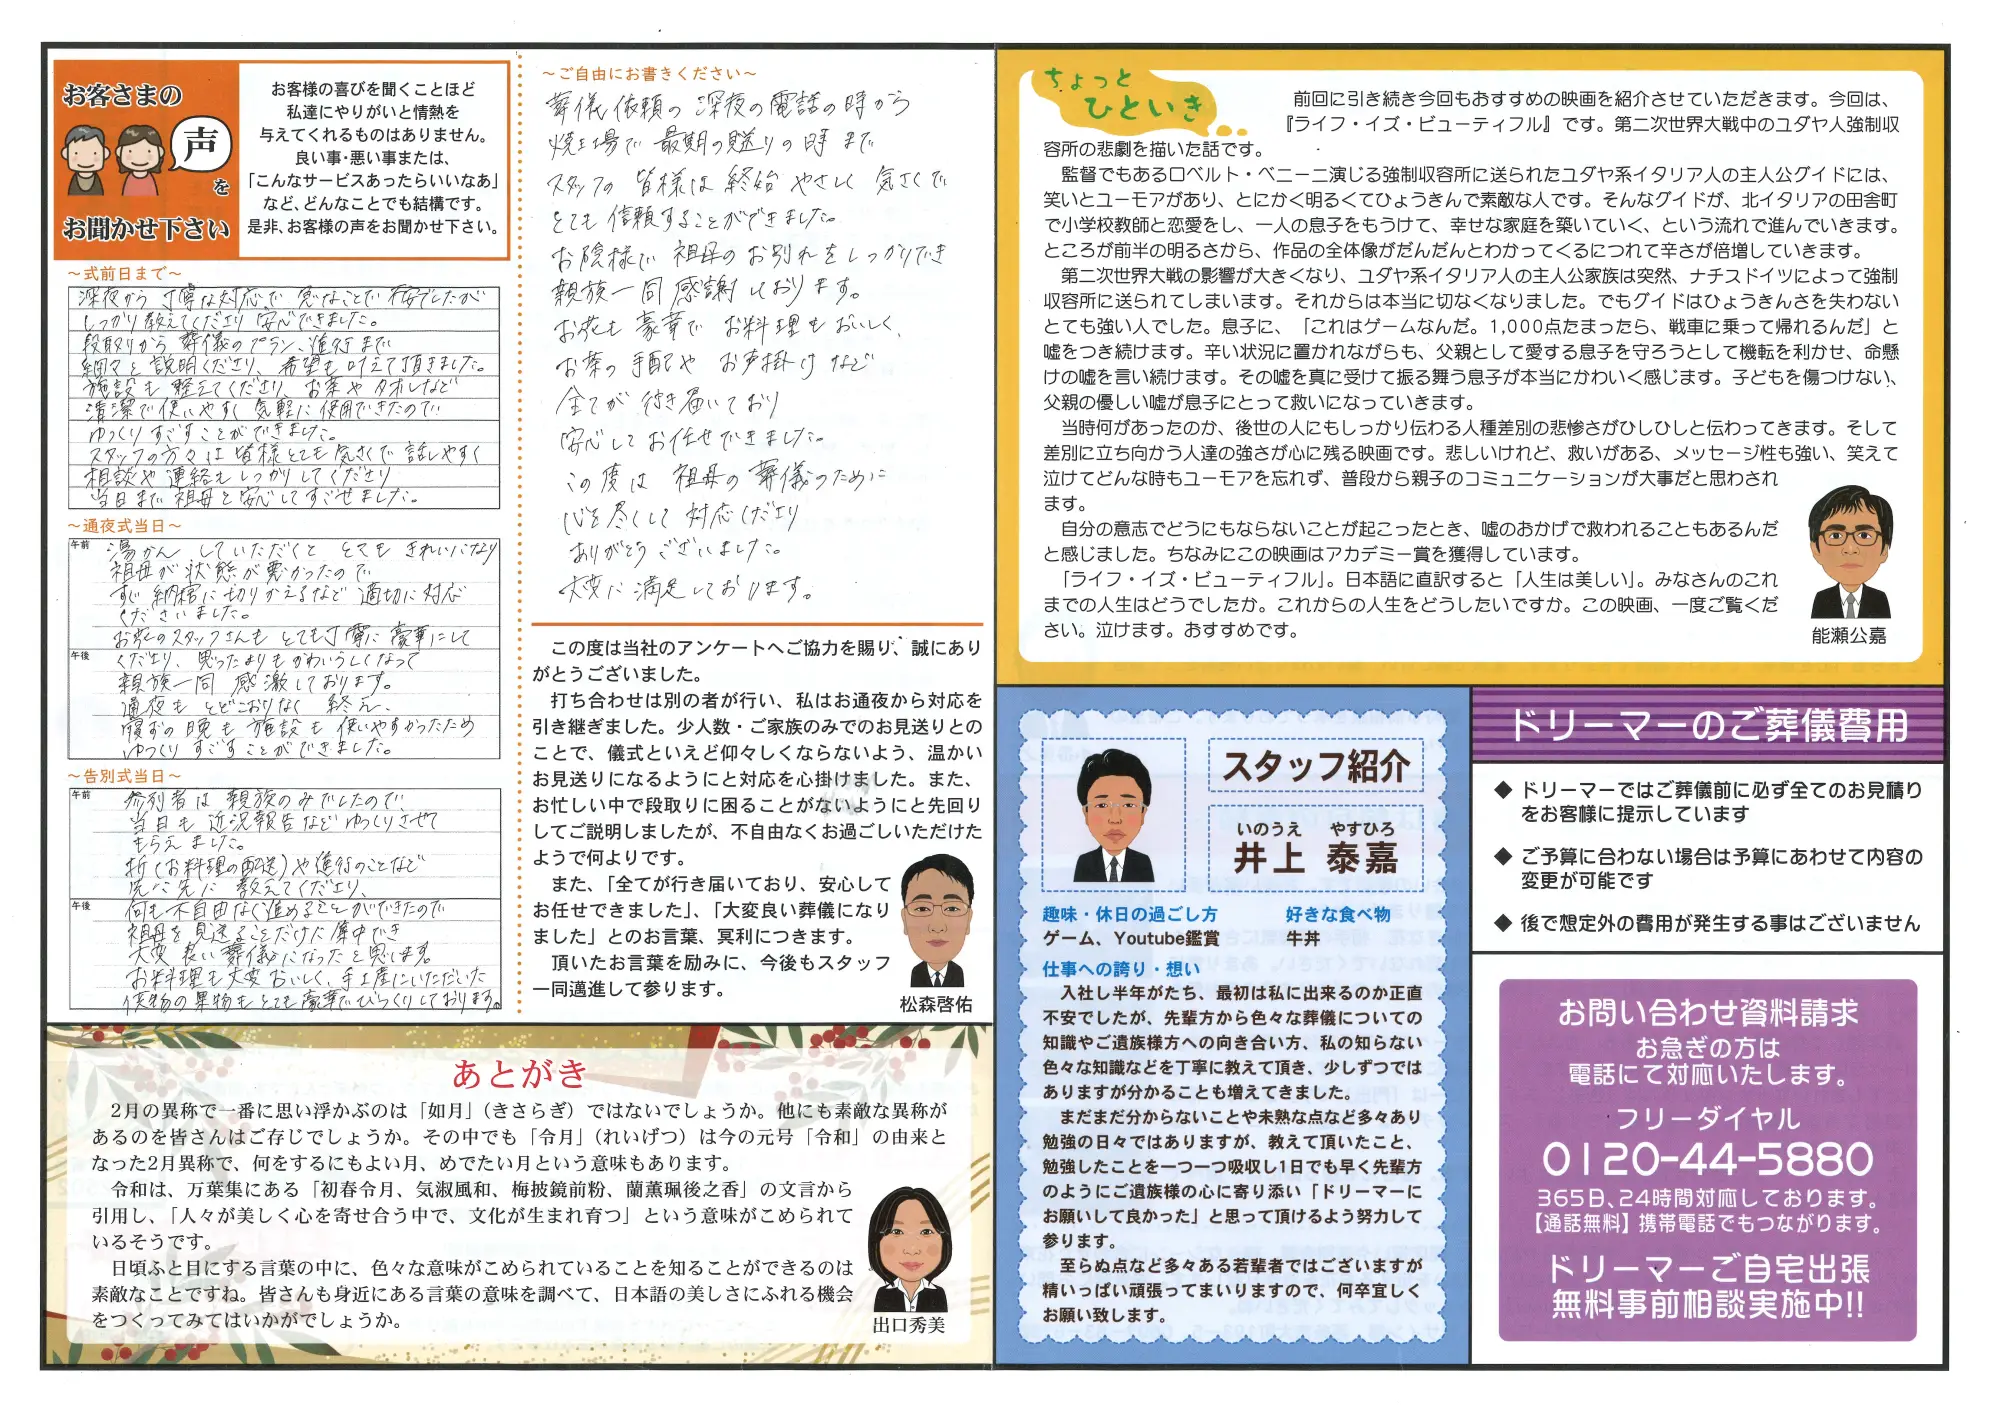 お客さまの
声
を
お聞かせ下さい
お客様の喜びを聞くことほど
私達にやりがいと情熱を
与えてくれるものはありません。
良い事・悪い事または、
「こんなサービスあったらいいなあ」
など、どんなことでも結構です。
是非、お客様の声をお聞かせ下さい。
～式前日まで～
深夜から 丁寧な対応で 急なことで 不安でしたが
しっかり教えてくださり 安心できました。
段取りから 葬儀のプラン、進行まで
細々と 説明くださり、希望も 叶えて頂きました。
施設も 整えてくださり、お茶や タオルなど
清潔で 使いやすく 気軽に 使用できたので
ゆっくり すごすことが できました。
スタッフの方々は 皆様とても 気さくで 話しやすく
相談や 連絡も しっかり してくださり
当日まで 祖母と 安心して すごせました。
～通夜式当日～
午前
湯かん していただくと とても きれいになり
祖母が 状態が 悪かったので
すぐ 納棺に 切りかえるなど 適切に 対応
くださいました。
お花のスタッフさんも とても丁寧に 豪華にして
午後
くださり、思ったよりも かわいらしくなって
親族一同 感激しております。
通夜も とどこおりなく 終え、
寝ずの 晩も 施設も 使いやすかったため
ゆっくり すごす ことが できました。
～告別式当日～
午前
参列者は 親族のみでしたので
当日も 近況報告など ゆっくりさせて
もらえました。
折(お料理の配送)や 進行のことなど
先に先に 教えてくださり、
午後
何も 不自由なく進めることができたので
祖母を 見送ることだけに 集中でき
大変 良い 葬儀になったと 思います。
お料理も 大変 おいしく、手土産にいただいた
供物の 果物も とても 豪華で びっくりしております。
～ご自由にお書きください～
葬儀依頼の 深夜の 電話の時から
焼き場で 最期の 送りの 時まで
スタッフの 皆様は 終始 やさしく 気さくで
とても 信頼することができました。
お陰様で 祖母の お別れを しっかりでき
親族一同 感謝しております。
お花も 豪華で お料理も おいしく、
お茶の 手配や お声掛けなど
全てが 行き届いており
安心して お任せできました。
この度は 祖母の 葬儀のために
心を尽くして 対応くださり
ありがとう ございました。
大変に 満足しております。
この度は当社のアンケートへご協力を賜り、誠にあり
がとうございました。
打ち合わせは別の者が行い、私はお通夜から対応を
引き継ぎました。少人数・ご家族のみでのお見送りとの
ことで、儀式といえど仰々しくならないよう、温かい
お見送りになるようにと対応を心掛けました。また、
お忙しい中で段取りに困ることがないようにと先回り
してご説明しましたが、不自由なくお過ごしいただけた
ようで何よりです。
また、「全てが行き届いており、安心して
お任せできました」、「大変良い葬儀になり
ました」とのお言葉、冥利につきます。
頂いたお言葉を励みに、今後もスタッフ
一同邁進して参ります。
松森啓祐
あとがき
2月の異称で一番に思い浮かぶのは「如月」（きさらぎ）ではないでしょうか。他にも素敵な異称が
あるのを皆さんはご存じでしょうか。その中でも「令月」（れいげつ）は今の元号「令和」の由来と
なった2月異称で、何をするにもよい月、めでたい月という意味もあります。
令和は、万葉集にある「初春令月、気淑風和、梅披鏡前粉、蘭薫珮後之香」の文言から
引用し、「人々が美しく心を寄せ合う中で、文化が生まれ育つ」という意味がこめられて
いるそうです。
日頃ふと目にする言葉の中に、色々な意味がこめられていることを知ることができるのは
素敵なことですね。皆さんも身近にある言葉の意味を調べて、日本語の美しさにふれる機会
をつくってみてはいかがでしょうか。
出口秀美
ちょっと
ひといき
前回に引き続き今回もおすすめの映画を紹介させていただきます。今回は、
『ライフ・イズ・ビューティフル』です。第二次世界大戦中のユダヤ人強制収
容所の悲劇を描いた話です。
監督でもあるロベルト・ベニーニ演じる強制収容所に送られたユダヤ系イタリア人の主人公グイドには、
笑いとユーモアがあり、とにかく明るくてひょうきんで素敵な人です。そんなグイドが、北イタリアの田舎町
で小学校教師と恋愛をし、一人の息子をもうけて、幸せな家庭を築いていく、という流れで進んでいきます。
ところが前半の明るさから、作品の全体像がだんだんとわかってくるにつれて辛さが倍増していきます。
第二次世界大戦の影響が大きくなり、ユダヤ系イタリア人の主人公家族は突然、ナチスドイツによって強制
収容所に送られてしまいます。それからは本当に切なくなりました。でもグイドはひょうきんさを失わない
とても強い人でした。息子に、「これはゲームなんだ。1,000点たまったら、戦車に乗って帰れるんだ」と
嘘をつき続けます。辛い状況に置かれながらも、父親として愛する息子を守ろうとして機転を利かせ、命懸
けの嘘を言い続けます。その嘘を真に受けて振る舞う息子が本当にかわいく感じます。子どもを傷つけない、
父親の優しい嘘が息子にとって救いになっていきます。
当時何があったのか、後世の人にもしっかり伝わる人種差別の悲惨さがひしひしと伝わってきます。そして
差別に立ち向かう人達の強さが心に残る映画です。悲しいけれど、救いがある、メッセージ性も強い、笑えて
泣けてどんな時もユーモアを忘れず、普段から親子のコミュニケーションが大事だと思わされ
ます。
自分の意志でどうにもならないことが起こったとき、嘘のおかげで救われることもあるんだ
と感じました。ちなみにこの映画はアカデミー賞を獲得しています。
「ライフ・イズ・ビューティフル」。日本語に直訳すると「人生は美しい」。みなさんのこれ
までの人生はどうでしたか。これからの人生をどうしたいですか。この映画、一度ご覧くだ
さい。泣けます。おすすめです。
能瀬公嘉
スタッフ紹介
いのうえ やすひろ
井上 泰嘉
趣味・休日の過ごし方
ゲーム、Youtube鑑賞
好きな食べ物
牛丼
仕事への誇り・想い
入社し半年がたち、最初は私に出来るのか正直
不安でしたが、先輩方から色々な葬儀についての
知識やご遺族様方への向き合い方、私の知らない
色々な知識などを丁寧に教えて頂き、少しずつでは
ありますが分かることも増えてきました。
まだまだ分からないことや未熟な点など多々あり
勉強の日々ではありますが、教えて頂いたこと、
勉強したことを一つ一つ吸収し1日でも早く先輩方
のようにご遺族様の心に寄り添い「ドリーマーに
お願いして良かった」と思って頂けるよう努力して
参ります。
至らぬ点など多々ある若輩者ではございますが
精いっぱい頑張ってまいりますので、何卒宜しく
お願い致します。
ドリーマーのご葬儀費用
◆ ドリーマーではご葬儀前に必ず全てのお見積り
をお客様に提示しています
◆ ご予算に合わない場合は予算にあわせて内容の
変更が可能です
◆ 後で想定外の費用が発生する事はございません
お問い合わせ資料請求
お急ぎの方は
電話にて対応いたします。
フリーダイヤル
0120-44-5880
365日、24時間対応しております。
【通話無料】携帯電話でもつながります。
ドリーマーご自宅出張
無料事前相談実施中!!